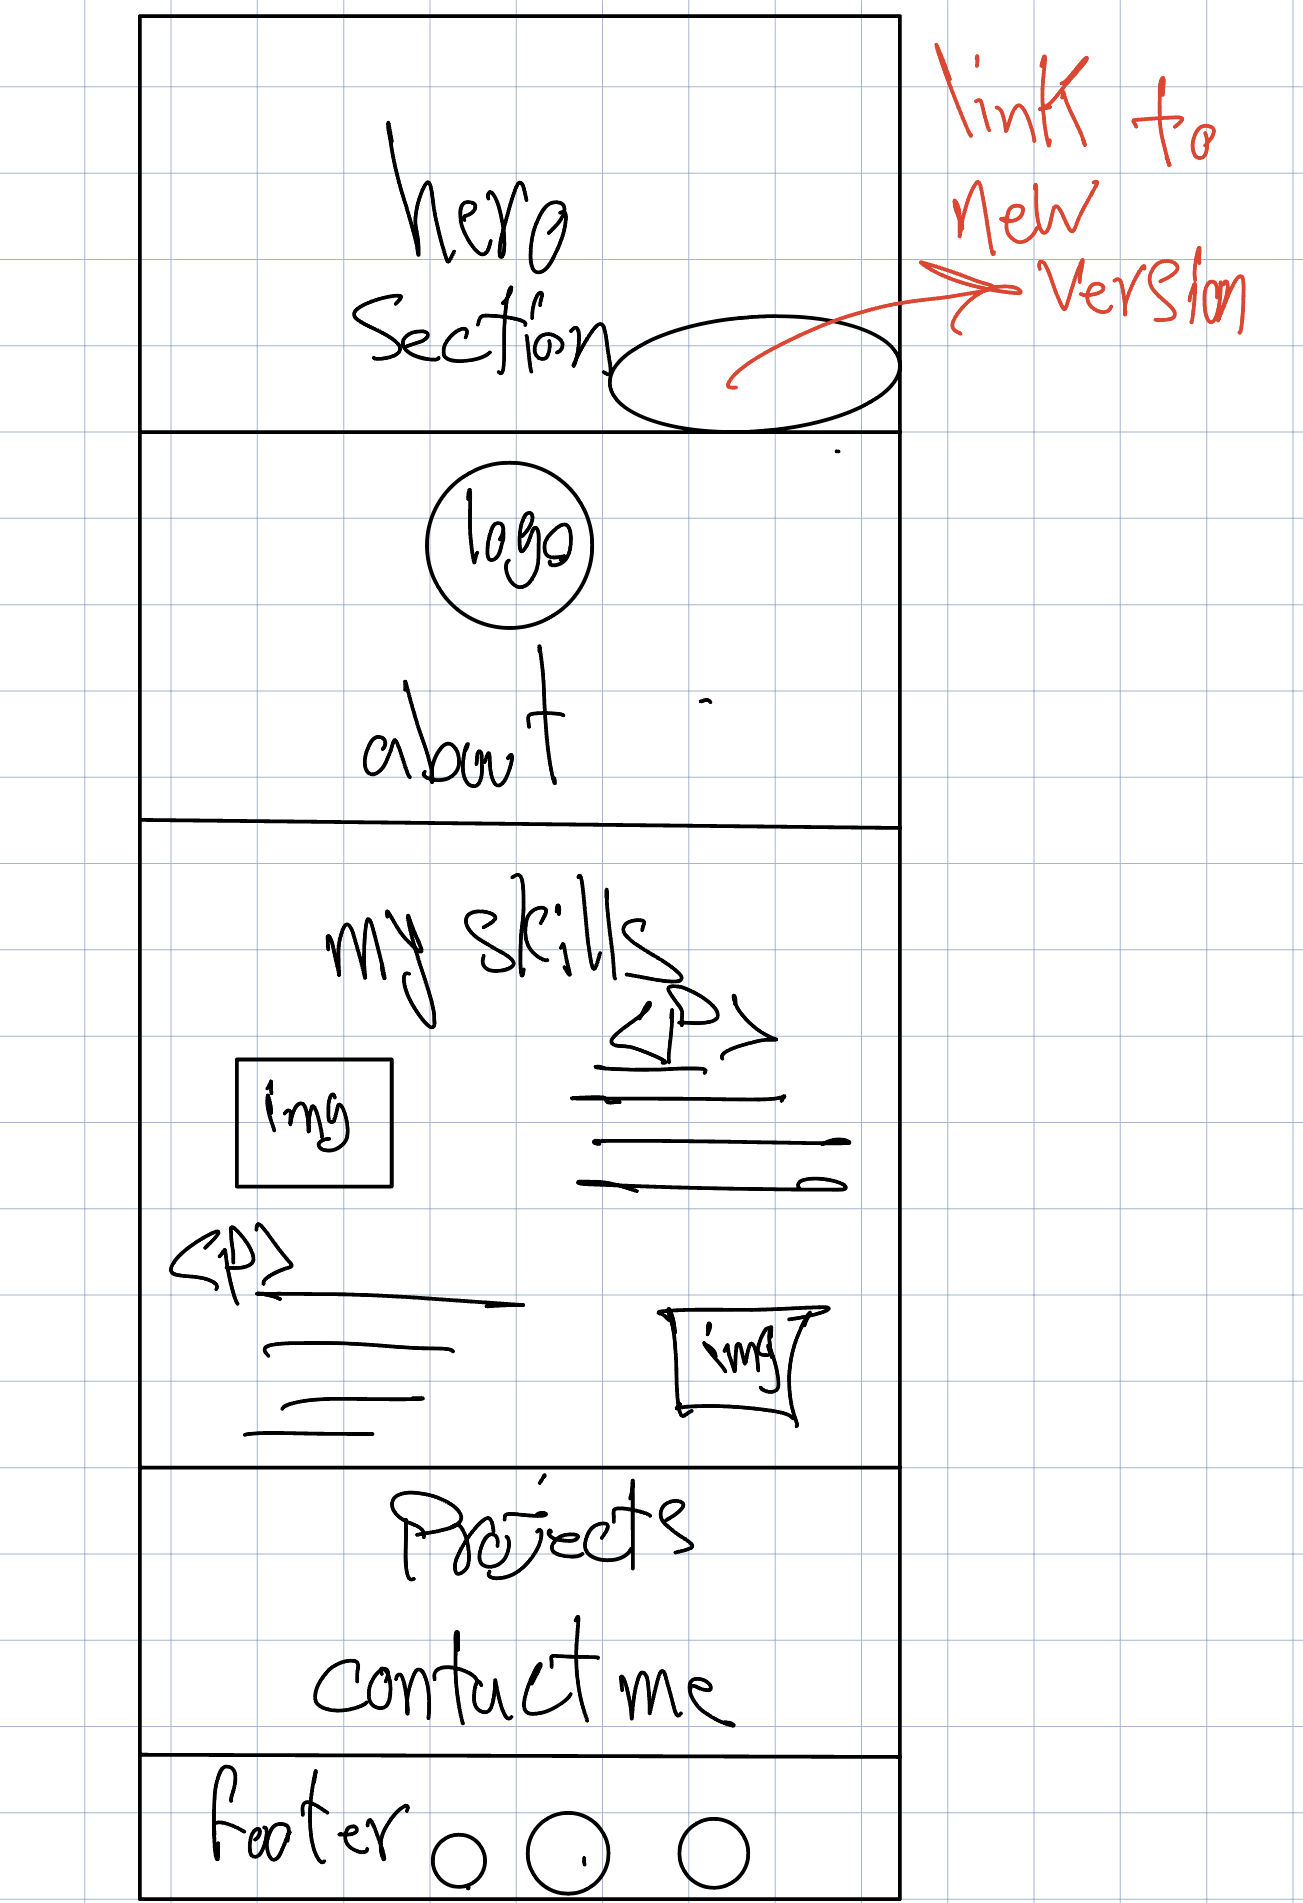 hero
section
link to
new
version
logo
about
my skills
<P>
img
<P>
img
Projects
contact me
footer